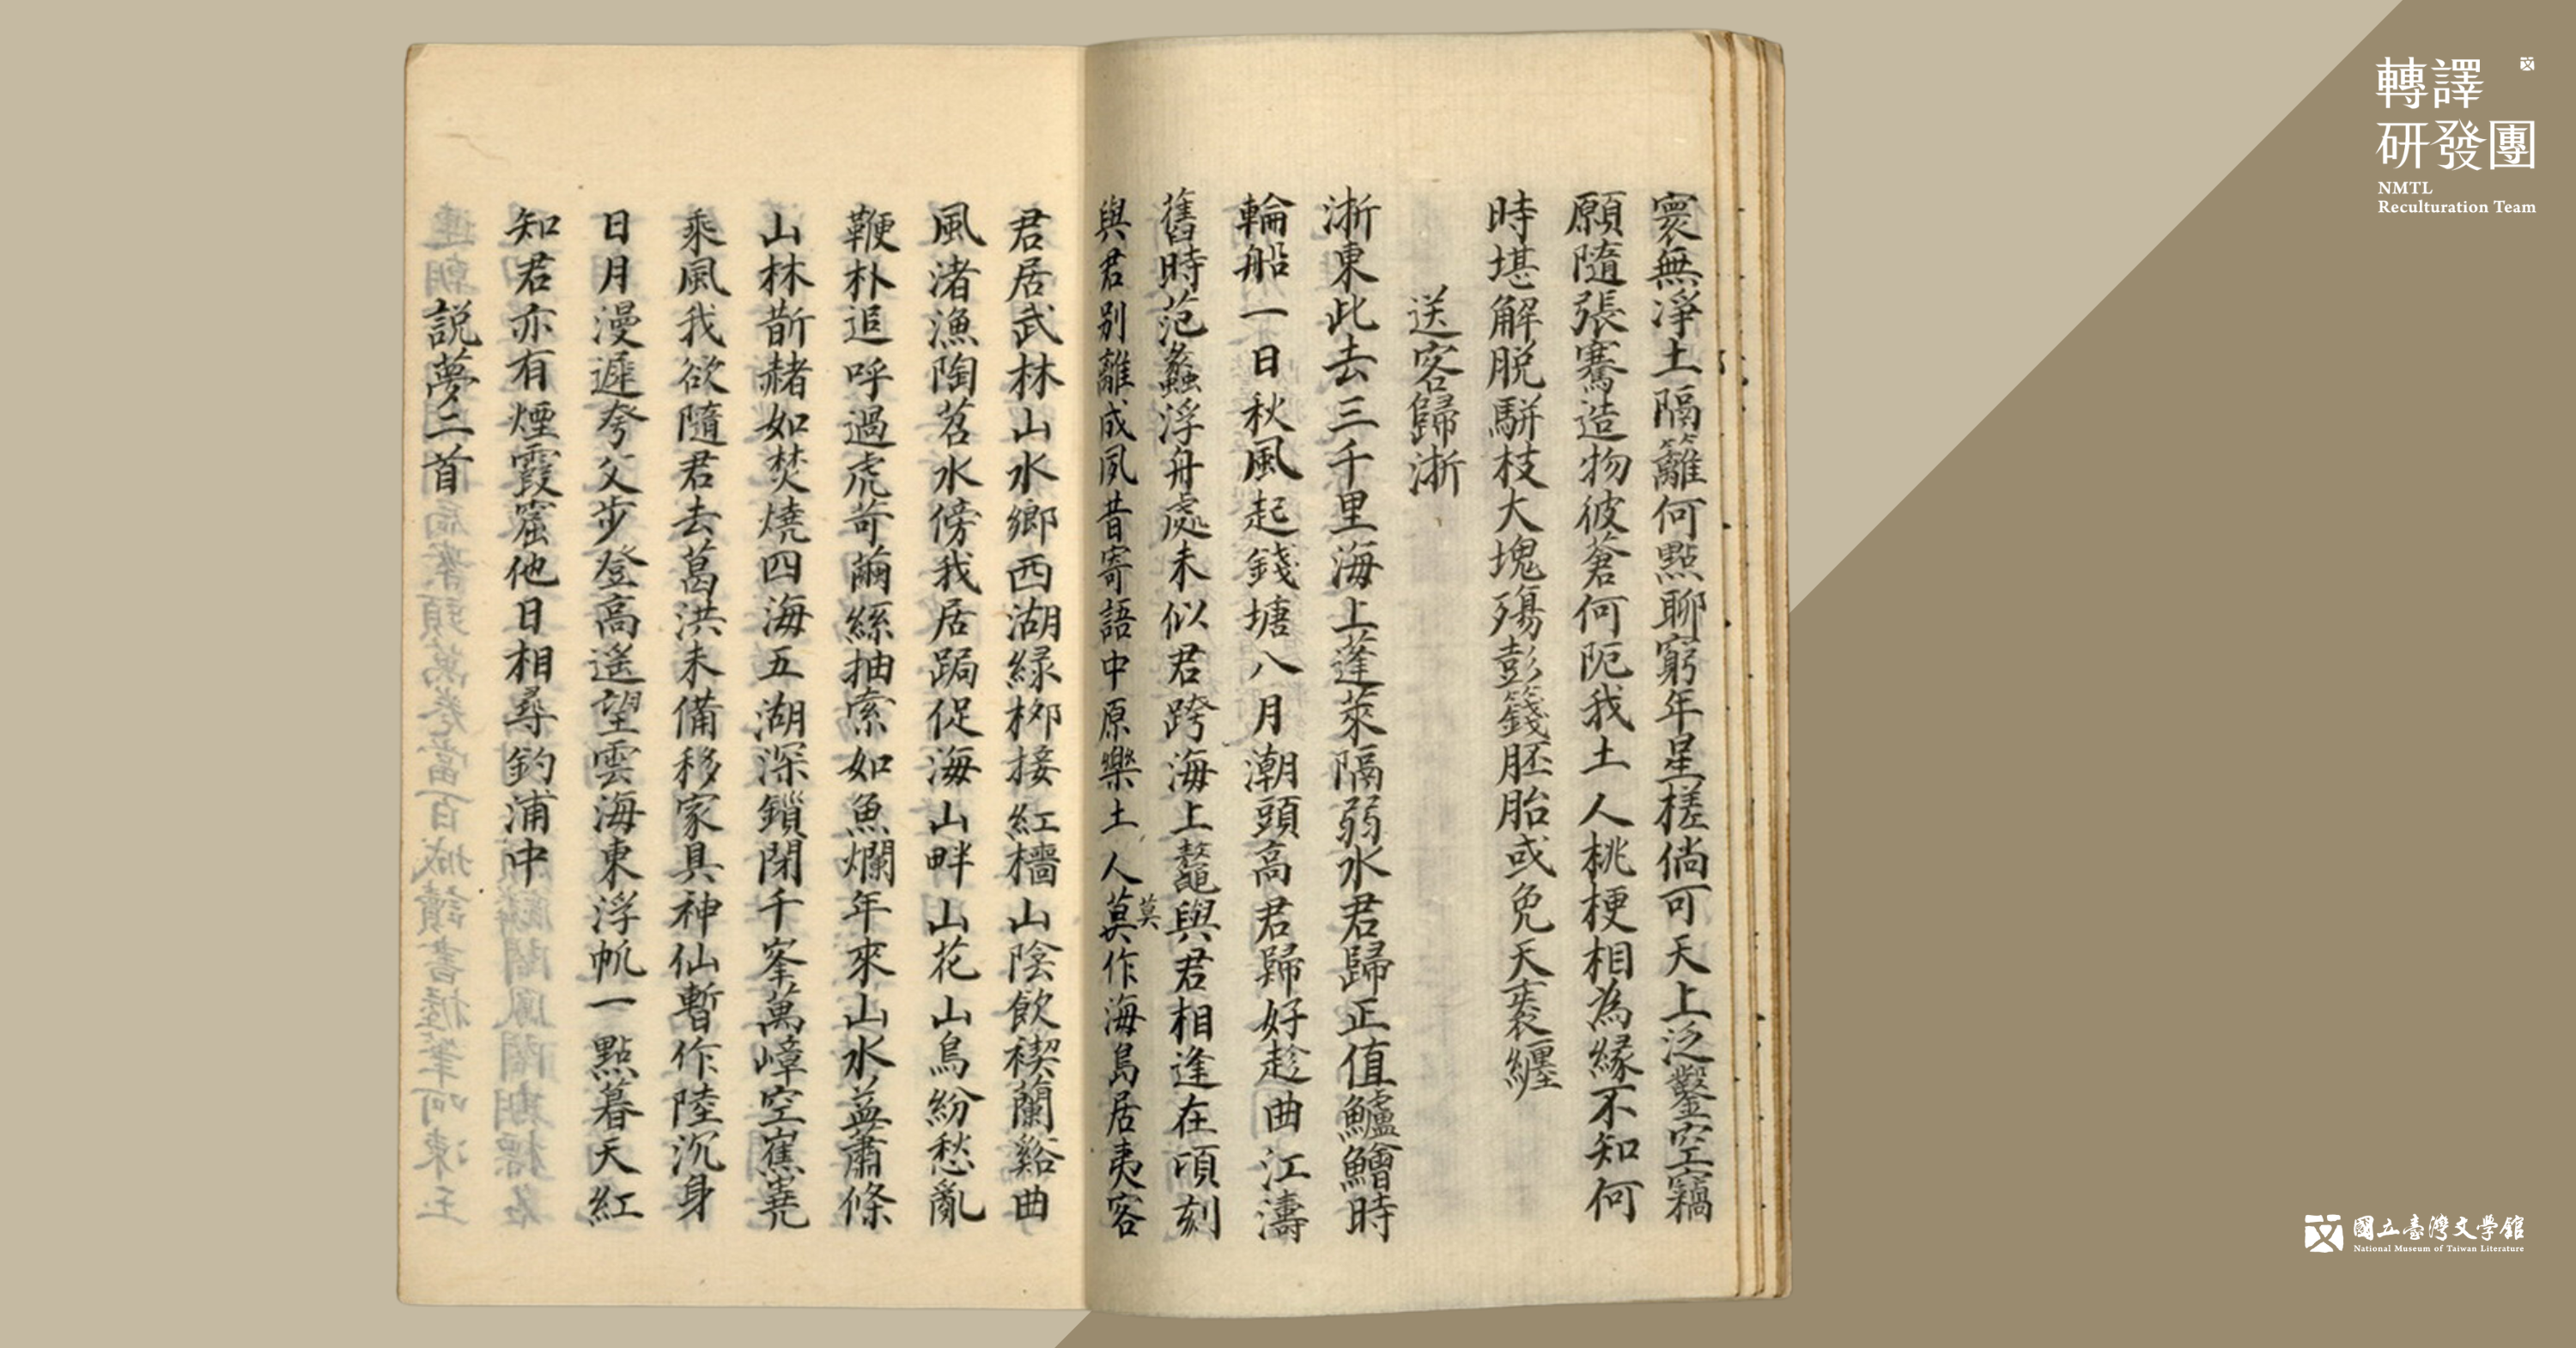 寰無淨土隔籬何點聊窮年星槎倘可天上泛鑿空竊
願隨張騫造物彼蒼何阨我土人桃梗相為緣不知何
時堪解脫駢枝大塊殤彭籛胚胎或免天袠纏
送客歸浙
浙東此去三千里海上蓬萊隔弱水君歸正值鱸鱠時
輪船一日秋風起錢塘八月潮頭高君歸好趁曲江濤
舊時范蠡浮舟處未似君跨海上鼇與君相逢在頃刻
與君別離成夙昔寄語中原樂土人莫作海島居夷客
莫
君居武林山水鄉西湖綠柳接紅檣山陰飲禊蘭谿曲
風渚漁陶苕水傍我居跼促海山畔山花山鳥紛愁亂
鞭朴追呼過虎苛繭絲抽索如魚爛年來山水益蕭條
山林斮赭如焚燒四海五湖深鎖閉千峯萬嶂空嶣嶤
乘風我欲隨君去葛洪未備移家具神仙暫作陸沉身
日月漫遲夸父步登高遙望雲海東浮帆一點暮天紅
知君亦有煙霞窟他日相尋釣浦中
說夢二首
轉譯
研發團
NMTL
Reculturation Team
國立臺灣文學館
National Museum of Taiwan Literature